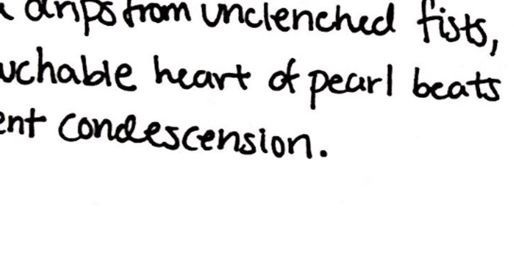 drips from unclenched fists,
heart of pearl beats
condescension.